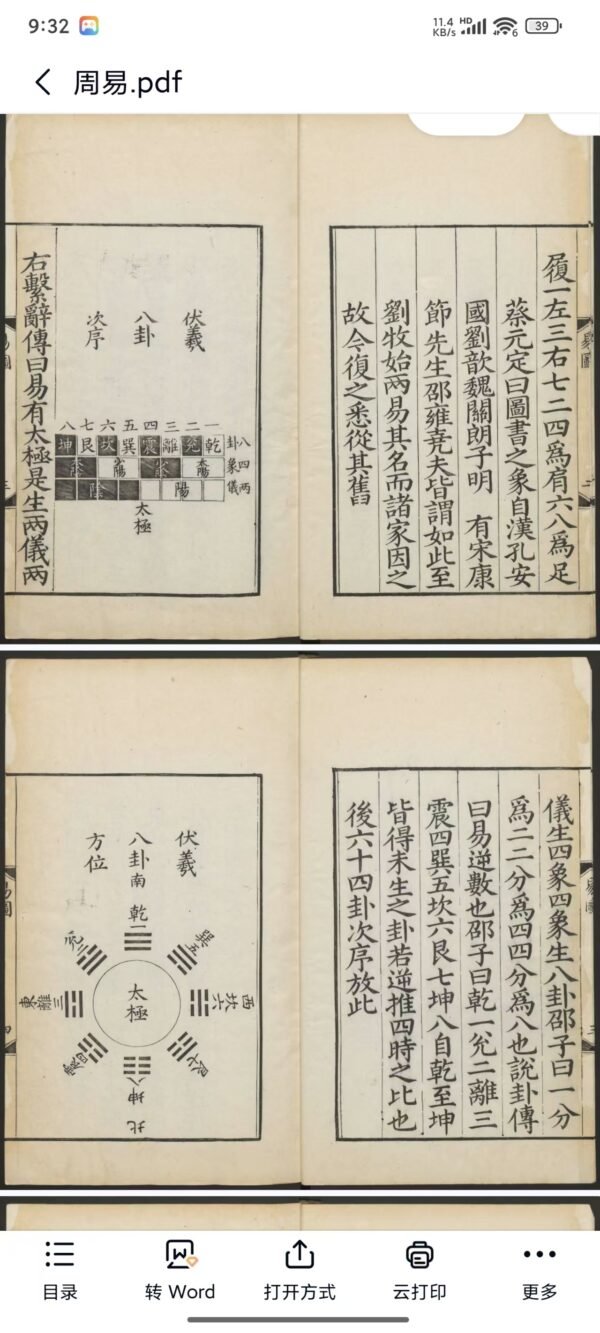 9:32
11.4 KB/s
HD
6
39
周易.pdf
履一左三右七二四爲肩六八爲足
蔡元定曰圖書之象自漢孔安
國劉歆魏關朗子明 有宋康
節先生邵雍堯夫皆謂如此至
劉牧始兩易其名而諸家因之
故今復之悉從其舊
伏羲
八卦
次序
八七六五四三二一
坤艮坎巽震離兌乾
八卦
四象
兩儀
陰 陽
太極
右繫辭傳曰易有太極是生兩儀兩
儀生四象四象生八卦邵子曰一分
爲二二分爲四四分爲八也說卦傳
曰易逆數也邵子曰乾一兌二離三
震四巽五坎六艮七坤八自乾至坤
皆得未生之卦若逆推四時之比也
後六十四卦次序放此
伏羲
八卦
方位
南
乾一
兌二
巽五
東
離三
太極
坎六
西
震四
艮七
坤八
北
目录
转 Word
打开方式
云打印
更多